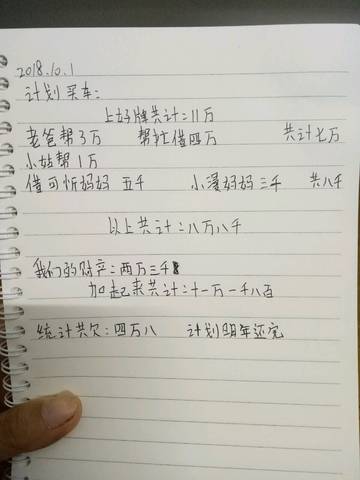 2018.10.1
计划买车:
上好牌共计=11万
老爸帮3万 帮忙借四万 共计七万
小姑帮1万
借可忻妈妈 五千 小漫妈妈三千 共八千
以上共计=八万八千
我们的财产:两万三千
加起来共计=十一万一千八百
统计共欠:四万八 计划明年还完